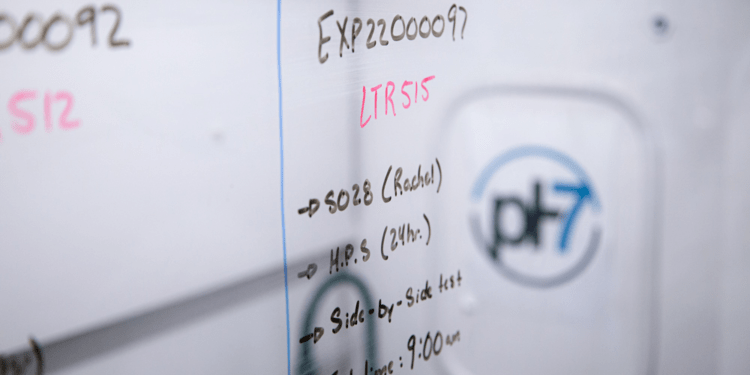 00092
512
EXP22000097
LTR515
→ SO28 (Rachel)
→ H.P.S (24hr.)
→ Side-by-Side test
time: 9:00am
pH7